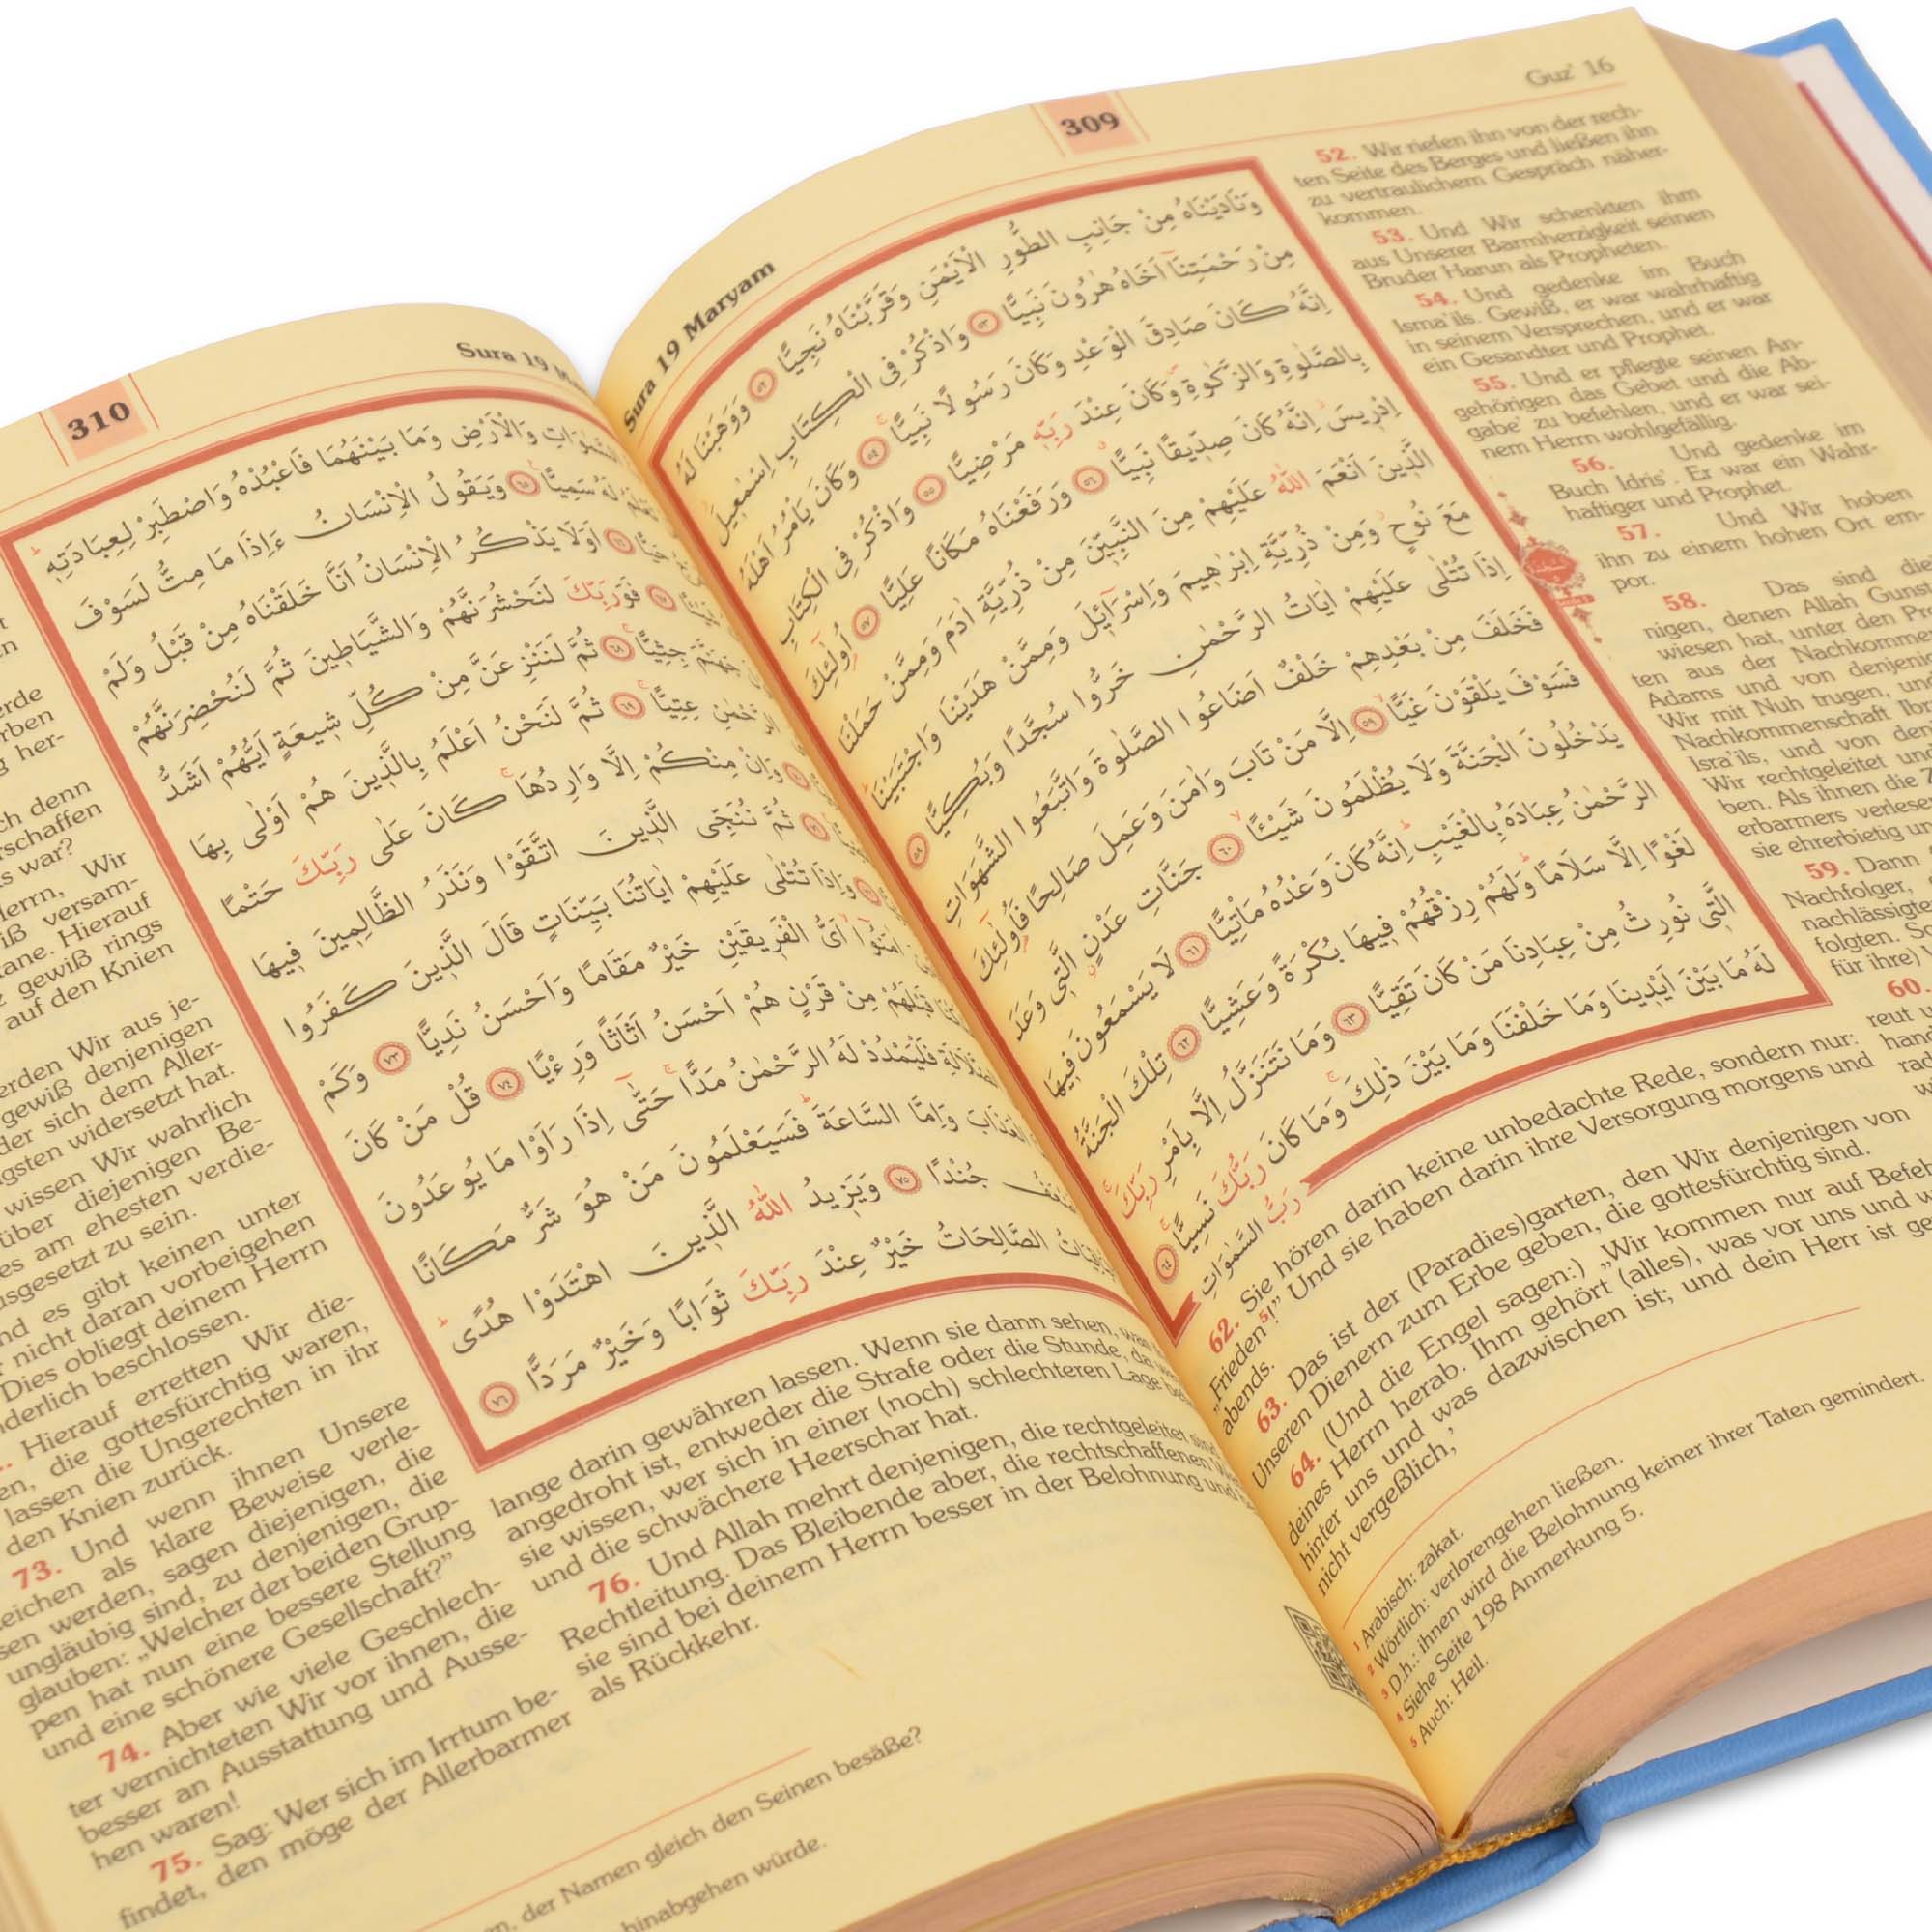 309
Guz' 16
Sura 19 Maryam
وَنَادَيْنَاهُ مِنْ جَانِبِ الطُّورِ الْاَيْمَنِ وَقَرَّبْنَاهُ نَجِيًّا ﴿٥٢﴾ وَوَهَبْنَا لَهُ
مِنْ رَحْمَتِنَٓا اَخَاهُ هٰرُونَ نَبِيًّا ﴿٥٣﴾ وَاذْكُرْ فِى الْكِتَابِ اِسْمٰعِيلَ
اِنَّهُ كَانَ صَادِقَ الْوَعْدِ وَكَانَ رَسُولًا نَبِيًّا ﴿٥٤﴾ وَكَانَ يَاْمُرُ اَهْلَهُ
بِالصَّلٰوةِ وَالزَّكٰوةِ وَكَانَ عِنْدَ رَبِّهٖ مَرْضِيًّا ﴿٥٥﴾ وَاذْكُرْ فِى الْكِتَابِ
اِدْرِيسَ اِنَّهُ كَانَ صِدِّيقًا نَبِيًّا ﴿٥٦﴾ وَرَفَعْنَاهُ مَكَانًا عَلِيًّا ﴿٥٧﴾ اُولٰٓئِكَ
الَّذِينَ اَنْعَمَ اللّٰهُ عَلَيْهِمْ مِنَ النَّبِيّٖنَ مِنْ ذُرِّيَّةِ اٰدَمَ وَمِمَّنْ حَمَلْنَا
مَعَ نُوحٍ وَمِنْ ذُرِّيَّةِ اِبْرٰهِيمَ وَاِسْرَٓائِلَ وَمِمَّنْ هَدَيْنَا وَاجْتَبَيْنَا
اِذَا تُتْلٰى عَلَيْهِمْ اٰيَاتُ الرَّحْمٰنِ خَرُّوا سُجَّدًا وَبُكِيًّا ﴿٥٨﴾
فَخَلَفَ مِنْ بَعْدِهِمْ خَلْفٌ اَضَاعُوا الصَّلٰوةَ وَاتَّبَعُوا الشَّهَوَاتِ
فَسَوْفَ يَلْقَوْنَ غَيًّا ﴿٥٩﴾ اِلَّا مَنْ تَابَ وَاٰمَنَ وَعَمِلَ صَالِحًا فَاُولٰٓئِكَ
يَدْخُلُونَ الْجَنَّةَ وَلَا يُظْلَمُونَ شَيْـًٔا ﴿٦٠﴾ جَنَّاتِ عَدْنٍ الَّتِى وَعَدَ
الرَّحْمٰنُ عِبَادَهُ بِالْغَيْبِ اِنَّهُ كَانَ وَعْدُهُ مَاْتِيًّا ﴿٦١﴾ لَا يَسْمَعُونَ فِيهَا
لَغْوًا اِلَّا سَلَامًا وَلَهُمْ رِزْقُهُمْ فِيهَا بُكْرَةً وَعَشِيًّا ﴿٦٢﴾ تِلْكَ الْجَنَّةُ
الَّتِى نُورِثُ مِنْ عِبَادِنَا مَنْ كَانَ تَقِيًّا ﴿٦٣﴾ وَمَا نَتَنَزَّلُ اِلَّا بِاَمْرِ رَبِّكَ
لَهُ مَا بَيْنَ اَيْدِينَا وَمَا خَلْفَنَا وَمَا بَيْنَ ذٰلِكَ وَمَا كَانَ رَبُّكَ نَسِيًّا ﴿٦٤﴾
رَبُّ السَّمٰوَاتِ
52. Wir riefen ihn von der rech-
ten Seite des Berges und ließen ihn
zu vertraulichem Gespräch näher-
kommen.
53. Und Wir schenkten ihm
aus Unserer Barmherzigkeit seinen
Bruder Harun als Propheten.
54. Und gedenke im Buch
Isma'ils. Gewiß, er war wahrhaftig
in seinem Versprechen, und er war
ein Gesandter und Prophet.
55. Und er pflegte seinen An-
gehörigen das Gebet und die Ab-
gabe¹ zu befehlen, und er war sei-
nem Herrn wohlgefällig.
56. Und gedenke im
Buch Idris'. Er war ein Wahr-
haftiger und Prophet.
57. Und Wir hoben
ihn zu einem hohen Ort em-
por.
58. Das sind
nigen, denen Allah
wiesen hat, unter den
ten aus der
Adams und von
Wir mit Nuh trugen,
Nachkommenschaft
Isra'ils, und von
Wir rechtgeleitet
ben. Als ihnen die
erbarmers
sie ehrerbietig
59. Dann
Nachfolger,
folgten.
für ihre)
60.
reut
62. Sie hören darin keine unbedachte Rede, sondern nur:
„Frieden⁵!” Und sie haben darin ihre Versorgung morgens und
abends.
63. Das ist der (Paradies)garten, den Wir denjenigen von
Unseren Dienern zum Erbe geben, die gottesfürchtig sind.
64. (Und die Engel sagen:) „Wir kommen nur auf
deines Herrn herab. Ihm gehört (alles), was vor uns und
hinter uns und was dazwischen ist; und dein Herr ist
nicht vergeßlich,
1 Arabisch: zakat.
2 Wörtlich: verlorengehen ließen.
3 D.h.: ihnen wird die Belohnung keiner ihrer Taten gemindert.
4 Siehe Seite 198 Anmerkung 5.
5 Auch: Heil.
310
Sura 19
وَالْاَرْضِ وَمَا بَيْنَهُمَا فَاعْبُدْهُ وَاصْطَبِرْ لِعِبَادَتِهٖ
لَهُ سَمِيًّا ﴿٦٥﴾ وَيَقُولُ الْاِنْسَانُ ءَاِذَا مَا مِتُّ لَسَوْفَ
﴿٦٦﴾ اَوَلَا يَذْكُرُ الْاِنْسَانُ اَنَّا خَلَقْنَاهُ مِنْ قَبْلُ وَلَمْ
﴿٦٧﴾ فَوَرَبِّكَ لَنَحْشُرَنَّهُمْ وَالشَّيَاطِينَ ثُمَّ لَنُحْضِرَنَّهُمْ
جِثِيًّا ﴿٦٨﴾ ثُمَّ لَنَنْزِعَنَّ مِنْ كُلِّ شِيعَةٍ اَيُّهُمْ اَشَدُّ
عِتِيًّا ﴿٦٩﴾ ثُمَّ لَنَحْنُ اَعْلَمُ بِالَّذِينَ هُمْ اَوْلٰى بِهَا
وَاِنْ مِنْكُمْ اِلَّا وَارِدُهَا كَانَ عَلٰى رَبِّكَ حَتْمًا
ثُمَّ نُنَجِّى الَّذِينَ اتَّقَوْا وَنَذَرُ الظَّالِمِينَ فِيهَا
وَاِذَا تُتْلٰى عَلَيْهِمْ اٰيَاتُنَا بَيِّنَاتٍ قَالَ الَّذِينَ كَفَرُوا
اَىُّ الْفَرِيقَيْنِ خَيْرٌ مَقَامًا وَاَحْسَنُ نَدِيًّا ﴿٧٣﴾ وَكَمْ
قَبْلَهُمْ مِنْ قَرْنٍ هُمْ اَحْسَنُ اَثَاثًا وَرِءْيًا ﴿٧٤﴾ قُلْ مَنْ كَانَ
فَلْيَمْدُدْ لَهُ الرَّحْمٰنُ مَدًّا حَتّٰٓى اِذَا رَاَوْا مَا يُوعَدُونَ
وَاِمَّا السَّاعَةَ فَسَيَعْلَمُونَ مَنْ هُوَ شَرٌّ مَكَانًا
جُنْدًا ﴿٧٥﴾ وَيَزِيدُ اللّٰهُ الَّذِينَ اهْتَدَوْا هُدًى
الصَّالِحَاتُ خَيْرٌ عِنْدَ رَبِّكَ ثَوَابًا وَخَيْرٌ مَرَدًّا ﴿٧٦﴾
her-
denn
war?
Wir
versam-
Hierauf
gewiß rings
auf den Knien
Wir aus je-
gewiß denjenigen
der sich dem Aller-
widersetzt hat.
wissen Wir wahrlich
über diejenigen Be-
am ehesten verdie-
ausgesetzt zu sein.
es gibt keinen unter
nicht daran vorbeigehen
Dies obliegt deinem Herrn
beschlossen.
Hierauf erretten Wir die-
die gottesfürchtig waren,
lassen die Ungerechten in ihr
den Knien zurück.
73. Und wenn ihnen Unsere
Zeichen als klare Beweise verle-
sen werden, sagen diejenigen, die
ungläubig sind, zu denjenigen, die
glauben: „Welcher der beiden Grup-
pen hat nun eine bessere Stellung
und eine schönere Gesellschaft?”
74. Aber wie viele Geschlech-
ter vernichteten Wir vor ihnen, die
besser an Ausstattung und Ausse-
hen waren!
75. Sag: Wer sich im Irrtum be-
findet, den möge der Allerbarmer
lange darin gewähren lassen. Wenn sie dann sehen,
angedroht ist, entweder die Strafe oder die Stunde, da
sie wissen, wer sich in einer (noch) schlechteren Lage
und die schwächere Heerschar hat.
76. Und Allah mehrt denjenigen, die rechtgeleitet sind,
Rechtleitung. Das Bleibende aber, die rechtschaffenen
sie sind bei deinem Herrn besser in der Belohnung und
als Rückkehr.
der Namen gleich den Seinen besäße?
hinabgehen würde.